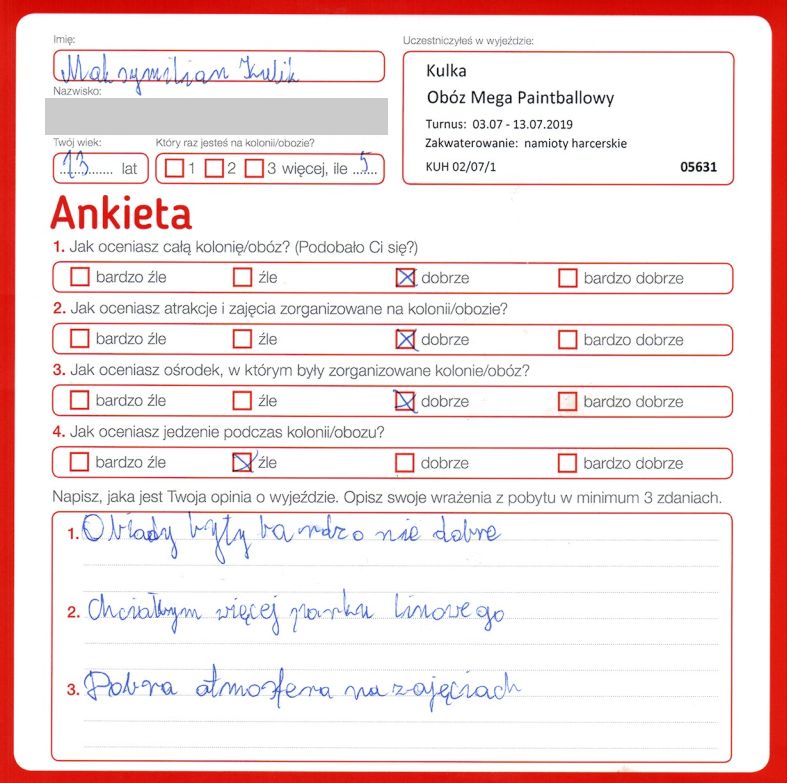 Imię:
Maksymilian Kulik
Nazwisko:
Twój wiek:
13 lat
Który raz jesteś na kolonii/obozie?
1 2 3 więcej, ile 5
Uczestniczyłeś w wyjeździe:
Kulka
Obóz Mega Paintballowy
Turnus: 03.07 - 13.07.2019
Zakwaterowanie: namioty harcerskie
KUH 02/07/1 05631
Ankieta
1. Jak oceniasz całą kolonię/obóz? (Podobało Ci się?)
bardzo źle źle dobrze bardzo dobrze
2. Jak oceniasz atrakcje i zajęcia zorganizowane na kolonii/obozie?
bardzo źle źle dobrze bardzo dobrze
3. Jak oceniasz ośrodek, w którym były zorganizowane kolonie/obóz?
bardzo źle źle dobrze bardzo dobrze
4. Jak oceniasz jedzenie podczas kolonii/obozu?
bardzo źle źle dobrze bardzo dobrze
Napisz, jaka jest Twoja opinia o wyjeździe. Opisz swoje wrażenia z pobytu w minimum 3 zdaniach.
1. Obiady były bardzo nie dobre
2. Chciałbym więcej parku linowego
3. Dobra atmosfera na zajęciach